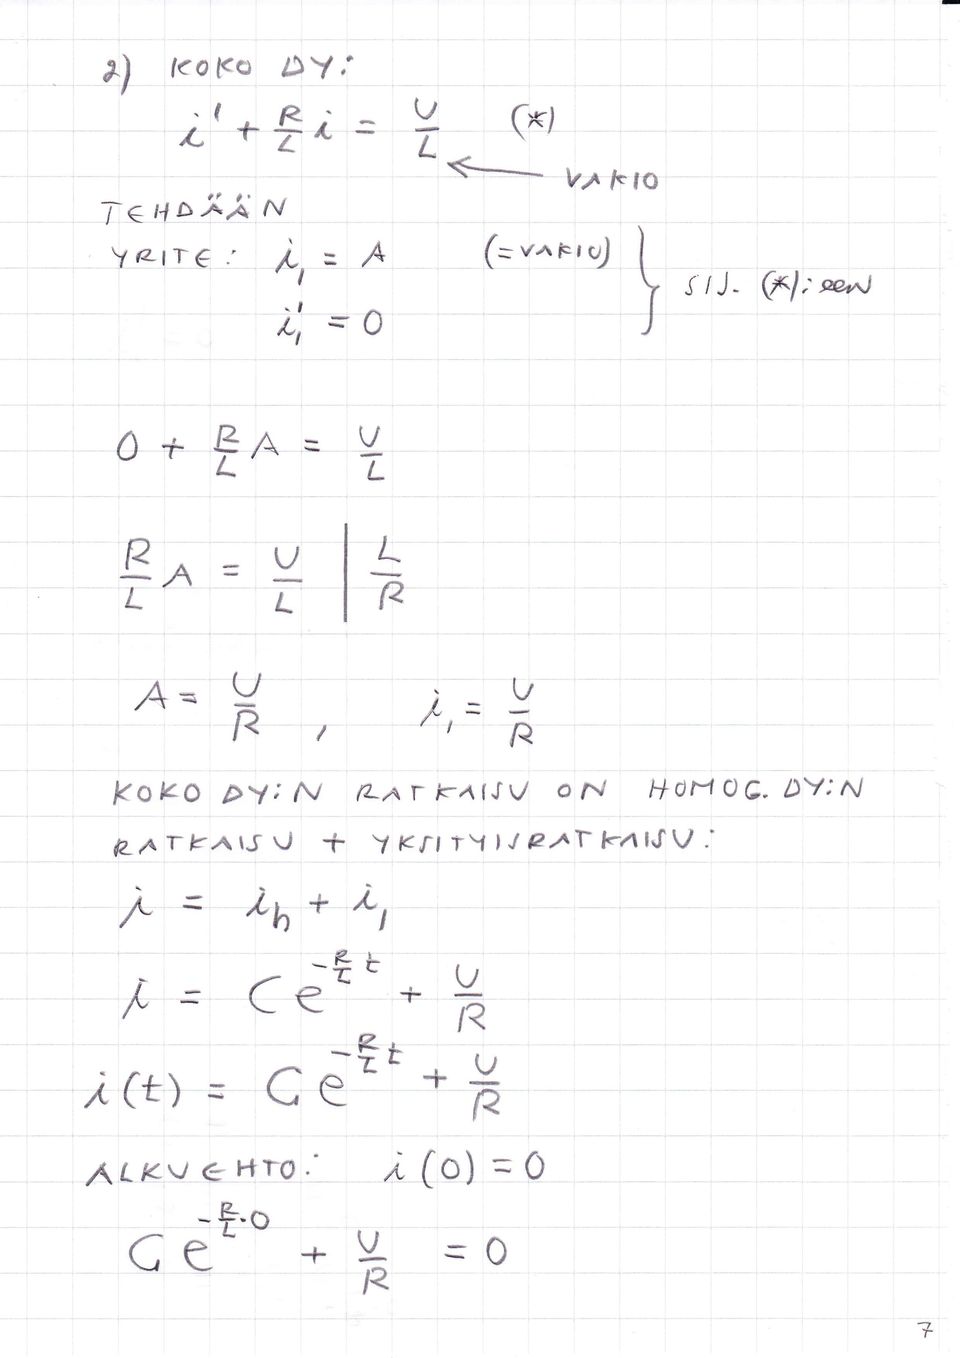 2) KOKO DY:
i' + R/L i = U/L (*)
← VAKIO
TEHDÄÄN
YRITE: i₁ = A (=VAKIO) } SIJ. (*):een
i₁' = 0
0 + R/L A = U/L
R/L A = U/L | L/R
A = U/R , i₁ = U/R
KOKO DY:N RATKAISU ON HOMOG. DY:N
RATKAISU + YKSITYISRATKAISU:
i = i_h + i₁
i = Ce^(-R/L t) + U/R
i(t) = Ce^(-R/L t) + U/R
ALKUEHTO: i(0) = 0
Ce^(-R/L·0) + U/R = 0
7